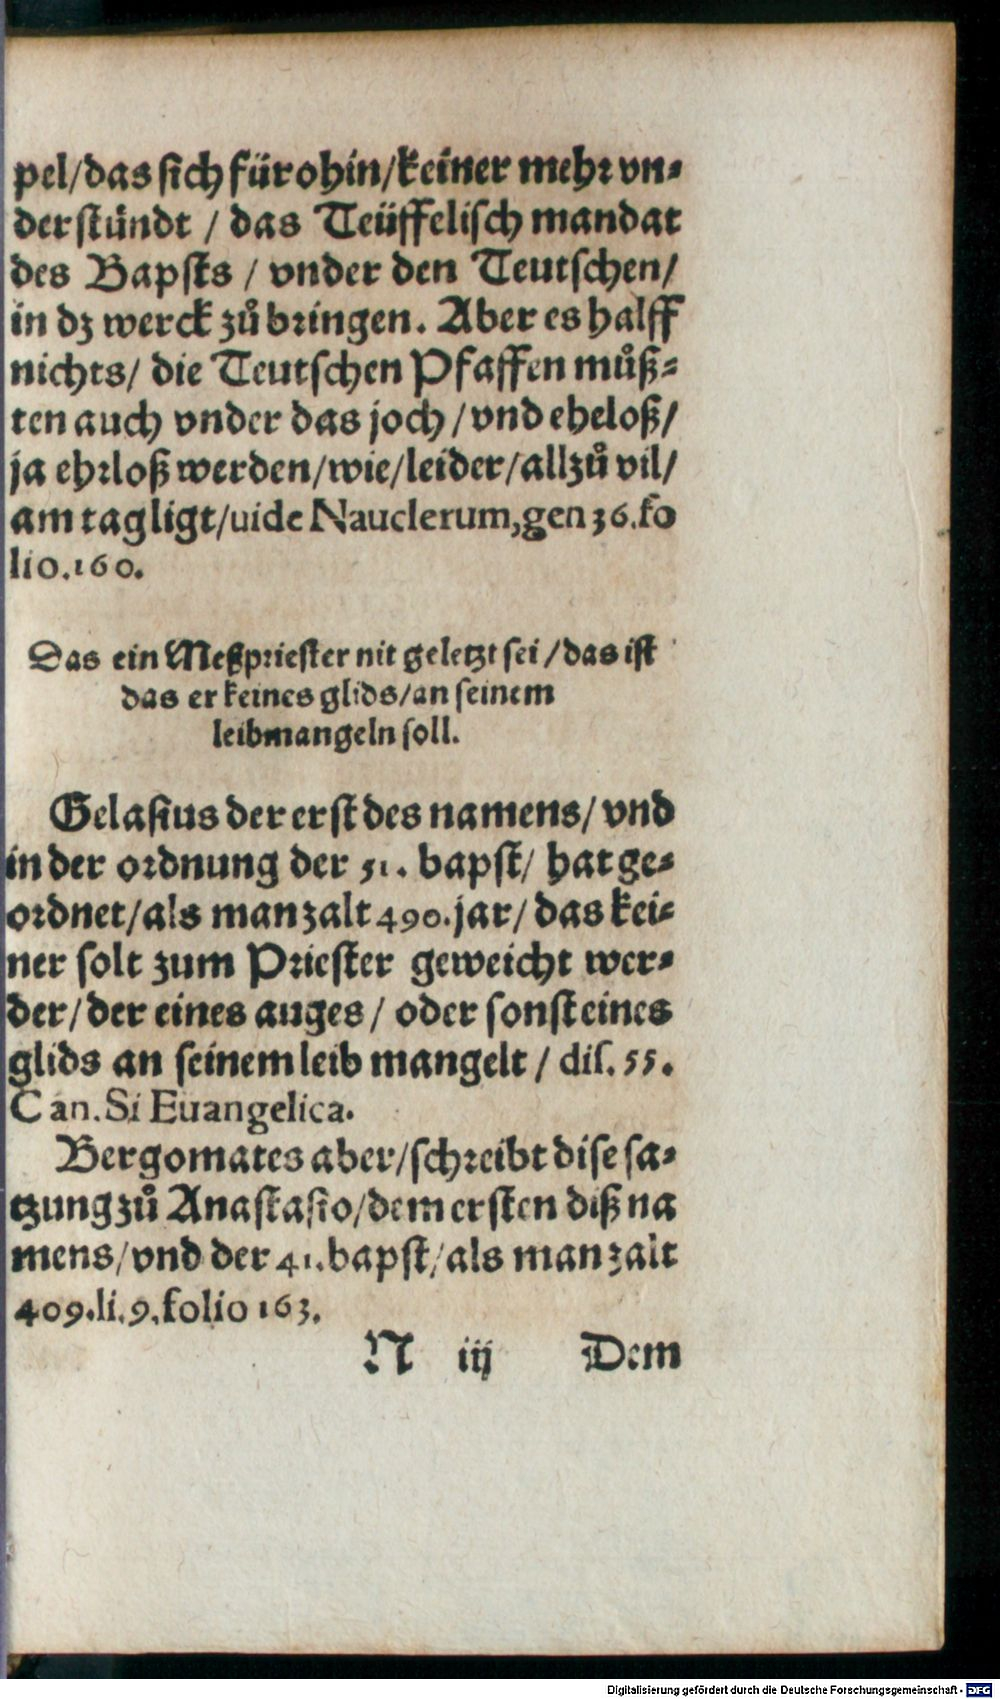 pel/das sich fürohin/keiner mehr vn-
derstündt / das Teüffelisch mandat
des Bapsts / vnder den Teutschen/
in dz werck zů bringen. Aber es halff
nichts/ die Teutschen Pfaffen můß-
ten auch vnder das joch / vnd eheloß/
ja ehrloß werden/wie/leider/allzů vil/
am tag ligt/uide Nauclerum,gen 36.fo
lio.160.
Das ein Meßpriester nit geletzt sei / das ist
das er keines glids/an seinem
leib mangeln soll.
Gelasius der erst des namens/ vnd
in der ordnung der 51. bapst/ hat ge-
ordnet/als man zalt 490.jar/ das kei-
ner solt zum Priester geweicht wer-
der/ der eines auges / oder sonst eines
glids an seinem leib mangelt / dis. 55.
Can. Si Euangelica.
Bergomates aber/schreibt dise sa-
tzung zů Anastasio/dem ersten diß na
mens/vnd der 41.bapst/als man zalt
409.li.9.folio 163.
N iij Dem
Digitalisierung gefördert durch die Deutsche Forschungsgemeinschaft - DFG